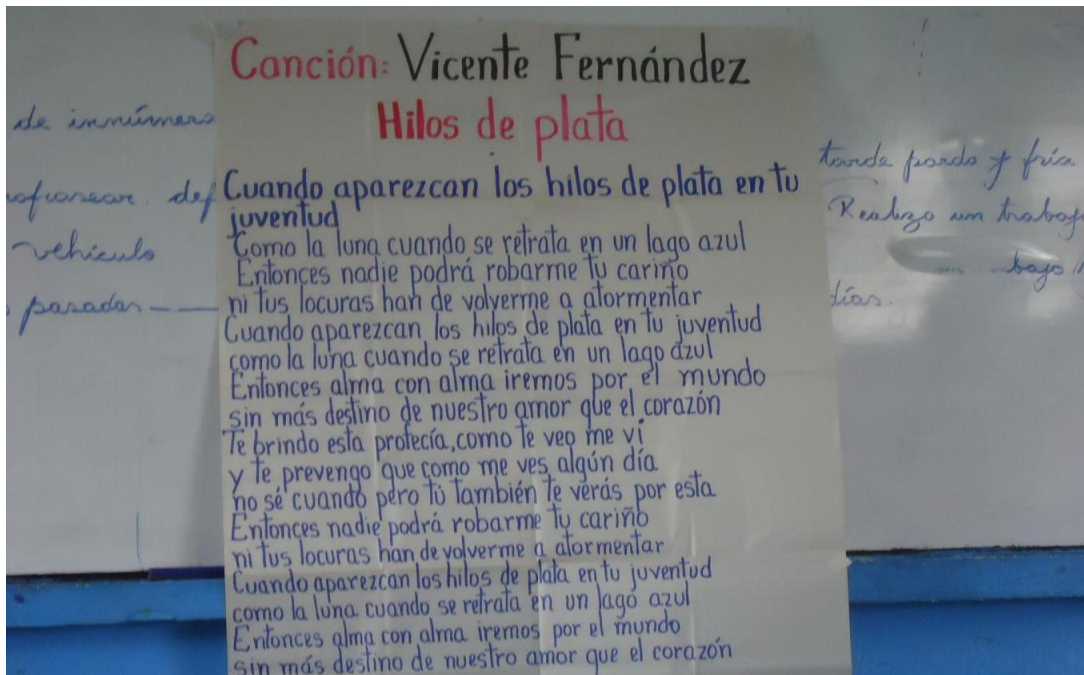 Canción: Vicente Fernández
Hilos de plata
Cuando aparezcan los hilos de plata en tu
juventud
Como la luna cuando se retrata en un lago azul
Entonces nadie podrá robarme tu cariño
ni tus locuras han de volverme a atormentar
Cuando aparezcan los hilos de plata en tu juventud
como la luna cuando se retrata en un lago azul
Entonces alma con alma iremos por el mundo
sin más destino de nuestro amor que el corazón
Te brindo esta profecía, como te veo me vi
y te prevengo que como me ves algún día
no sé cuando pero tú también te verás por esta
Entonces nadie podrá robarme tu cariño
ni tus locuras han de volverme a atormentar
Cuando aparezcan los hilos de plata en tu juventud
como la luna cuando se retrata en un lago azul
Entonces alma con alma iremos por el mundo
sin más destino de nuestro amor que el corazón
de
vehiculo
pasadas
tarde parda y fría
Realizo un
bajo
días.